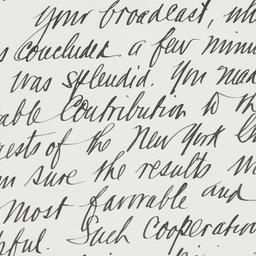 Your broadcast, wh
s concluded a few minu
was splendid. You mad
able contribution to th
rests of the New York
m sure the results w
most favorable and
pful. Such cooperation